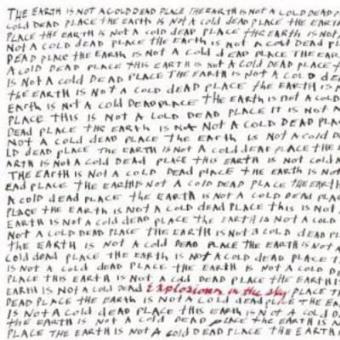 THE EARTH IS NOT A COLD DEAD PLACE THE EARTH IS NOT A COLD DEAD P
COLD DEAD PLACE THE EARTH IS NOT A COLD DEAD PLACE THE EARTH
PLACE THE EARTH IS NOT A COLD DEAD PLACE THE EARTH IS NOT
NOT A COLD DEAD PLACE THE EARTH IS NOT A COLD DEAD PL
DEAD PLACE THE EARTH IS NOT A COLD DEAD PLACE THE EAR
A COLD DEAD PLACE THIS EARTH IS NOT A COLD DEAD PLACE T
IS NOT A COLD DEAD PLACE THE EARTH IS NOT A COLD DEAD
THE EARTH IS NOT A COLD DEAD PLACE THE EARTH IS N
EARTH IS NOT A COLD DEAD PLACE THE EARTH IS NOT A COLD
PLACE THIS IS NOT A COLD DEAD PLACE IT IS NOT A
DEAD PLACE THE EARTH IS NOT A COLD DEAD PLA
NOT A COLD DEAD PLACE THE EARTH IS NOT A COLD D
LD DEAD PLACE THE EARTH IS NOT A COLD DEAD PLACE THE
ARTH IS NOT A COLD DEAD PLACE THIS EARTH IS NOT COLD
THE EARTH IS NOT A COLD DEAD PLACE THE EARTH IS NOT A
EAD PLACE THE EARTH IS NOT A COLD DEAD PLACE THE EARTH
A COLD DEAD PLACE THE EARTH IS NOT A COLD DEAD PLA
PLACE THE EARTH IS NOT A COLD DEAD PLACE THIS IS NOT
EARTH IS NOT A COLD DEAD PLACE THE EARTH IS NOT A COLD
NOT A COLD DEAD PLACE THE EARTH IS NOT A COLD DEAD P
THE EARTH IS NOT A COLD DEAD PLACE THE EARTH IS NOT A
COLD DEAD PLACE THE EARTH IS NOT A COLD DEAD PLACE T
IS NOT A COLD DEAD PLACE THE EARTH IS NOT A COLD DEAD
PLACE THIS EARTH IS NOT A COLD DEAD PLACE THE EARTH
EARTH IS NOT A COLD DEAD Explosions in the sky PLACE T
DEAD PLACE THE EARTH IS NOT A COLD DEAD PLACE THE EA
IS NOT A COLD DEAD PLACE THE EARTH IS NOT A COLD D
THE EARTH IS NOT A COLD DEAD PLACE THE EARTH IS N
PLACE THE EARTH IS NOT A COLD DEAD PLACE THE EARTH